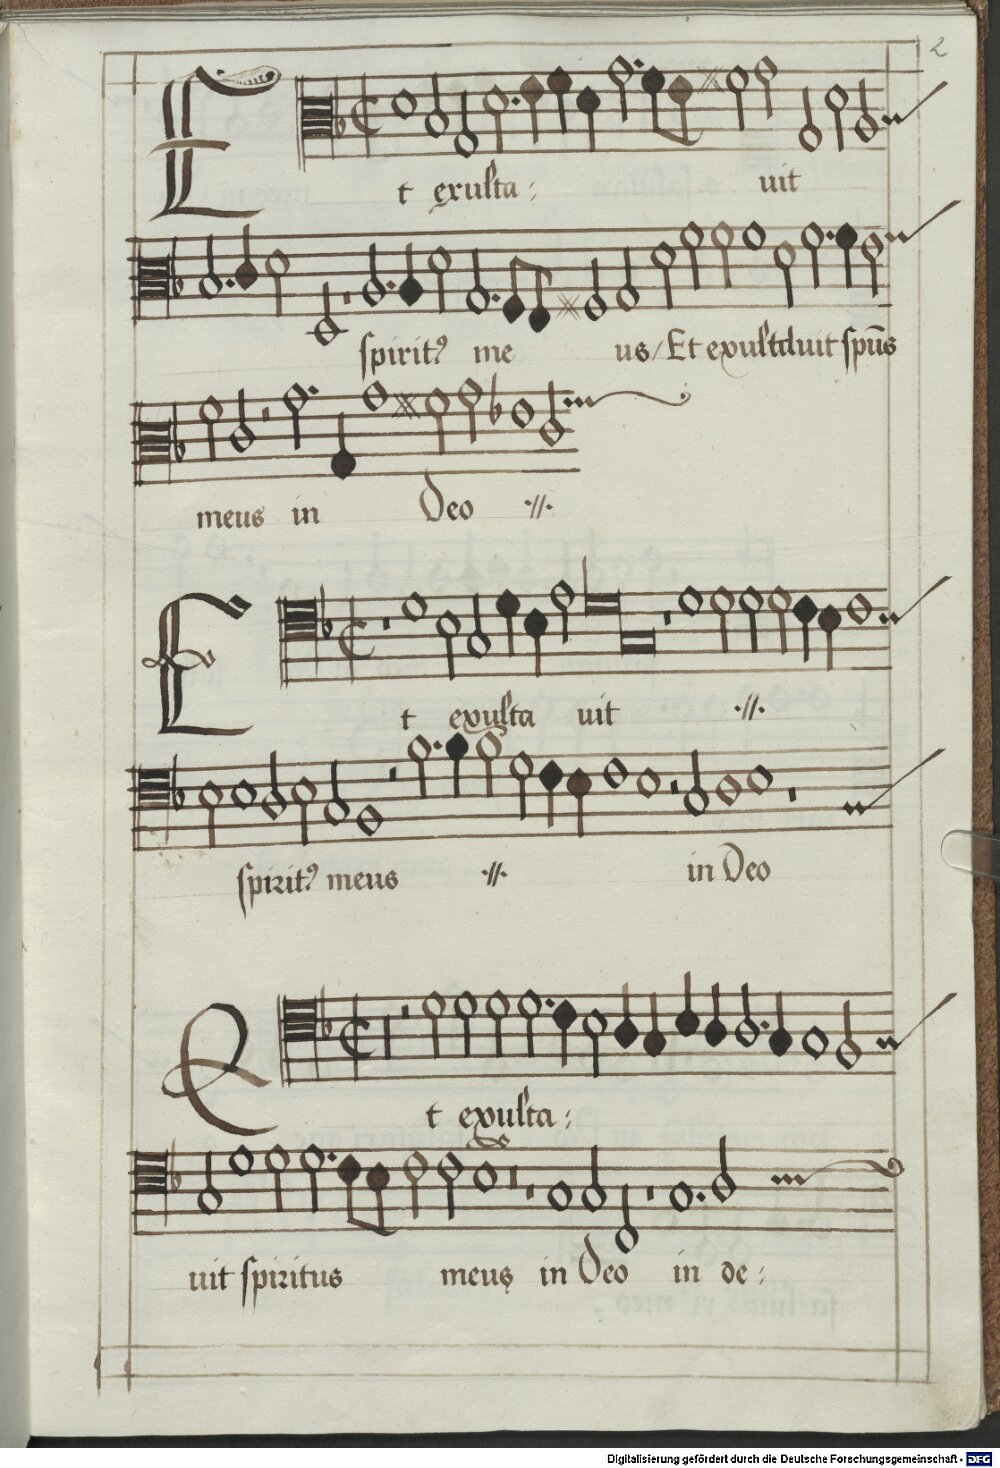 2
Et exulta: uit
spirit⁹ me us / Et exultauit sp̄us
meus in Deo ·//·
Et exulta uit ·//·
spirit⁹ meus ·//· in Deo
Et exulta:
uit spiritus meus in Deo in de:
Digitalisierung gefördert durch die Deutsche Forschungsgemeinschaft - DFG